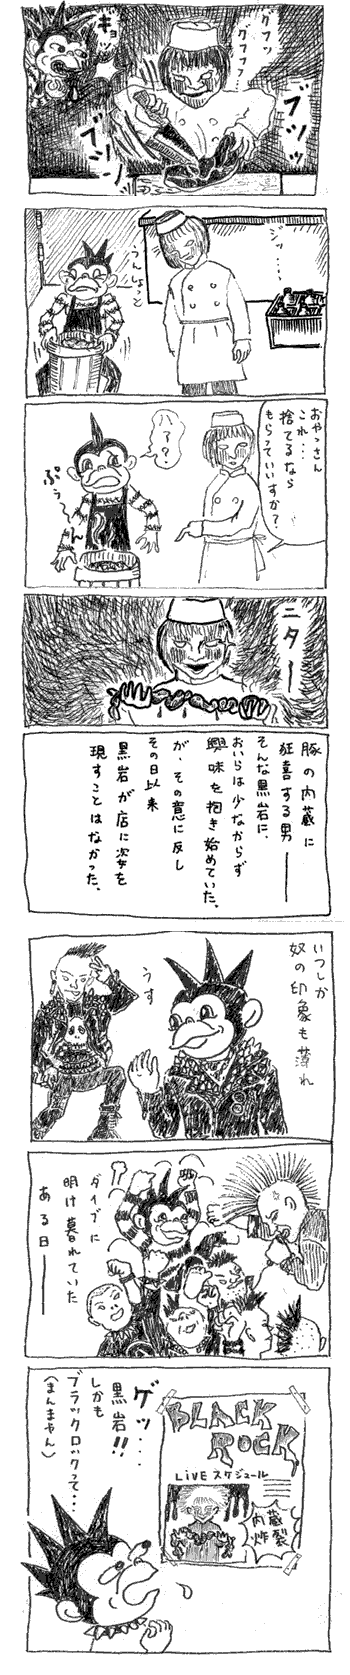 グフッ
グフフフ…
キョッ
ブツッ
ブツン
ジッ……
うんしょっと
おやっさん
これ…
捨てるなら
もらっていいすか？
ハァ？
ぷぅ〜ん
ニター
豚の内蔵に
狂喜する男――
そんな黒岩に、
おいらは少なからず
興味を抱き始めていた、
が、その意に反し
その日以来
黒岩が店に姿を
現すことはなかった。
いつしか
奴の印象も薄れ
うす
ダイブに
明け暮れていた
ある日――
BLACK
ROCK
LiVE スケジュール
内蔵
炸裂
ゲッ・・・
黒岩!!
しかも
ブラックロックって・・・
(まんまやん)